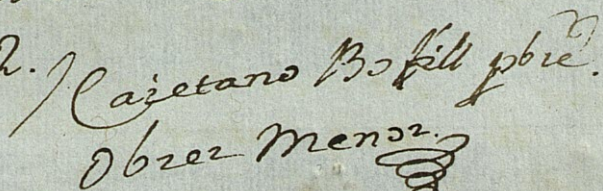 2. Cayetano Bofill pbre.
Obrer Menor.